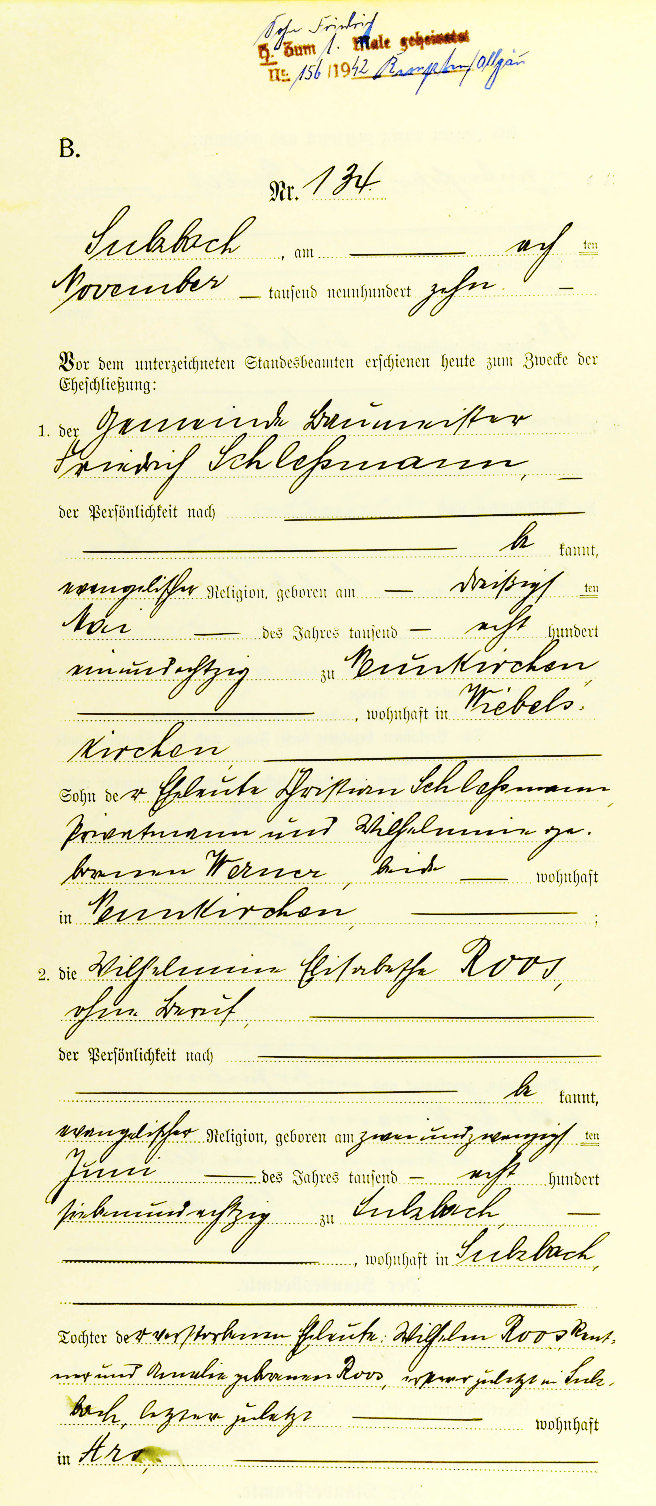 Sohn Friedrich
H. Zum 1. Male geheiratet
Nr. 156/1942 Kempten/Allgäu
B.
Nr. 134.
Sulzbach, am — ach ten
November — tausend neunhundert zehn —
Vor dem unterzeichneten Standesbeamten erschienen heute zum Zwecke der
Eheschließung:
1. der Gemeinde Baumeister
Friedrich Schleßmann, —
der Persönlichkeit nach —
— be kannt,
evangelischer Religion, geboren am — dreißigs ten
Mai — des Jahres tausend — acht hundert
einundachtzig zu Neunkirchen,
—, wohnhaft in Wiebels-
kirchen, —
Sohn der Eheleute Christian Schleßmann,
Privatmann und Wilhelmine ge-
borenen Werner, beide — wohnhaft
in Neunkirchen, — ;
2. die Wilhelmine Elisabethe Roos,
ohne Beruf, —
der Persönlichkeit nach —
— be kannt,
evangelischer Religion, geboren am zweiundzwanzigs ten
Juni — des Jahres tausend — acht hundert
siebenundachtzig zu Sulzbach, —
—, wohnhaft in Sulzbach,
—
Tochter der verstorbenen Eheleute: Wilhelm Roos, Rent-
ner und Amalie geborenen Roos, ersterer zuletzt in Sulz-
bach, letztere zuletzt — wohnhaft
in —